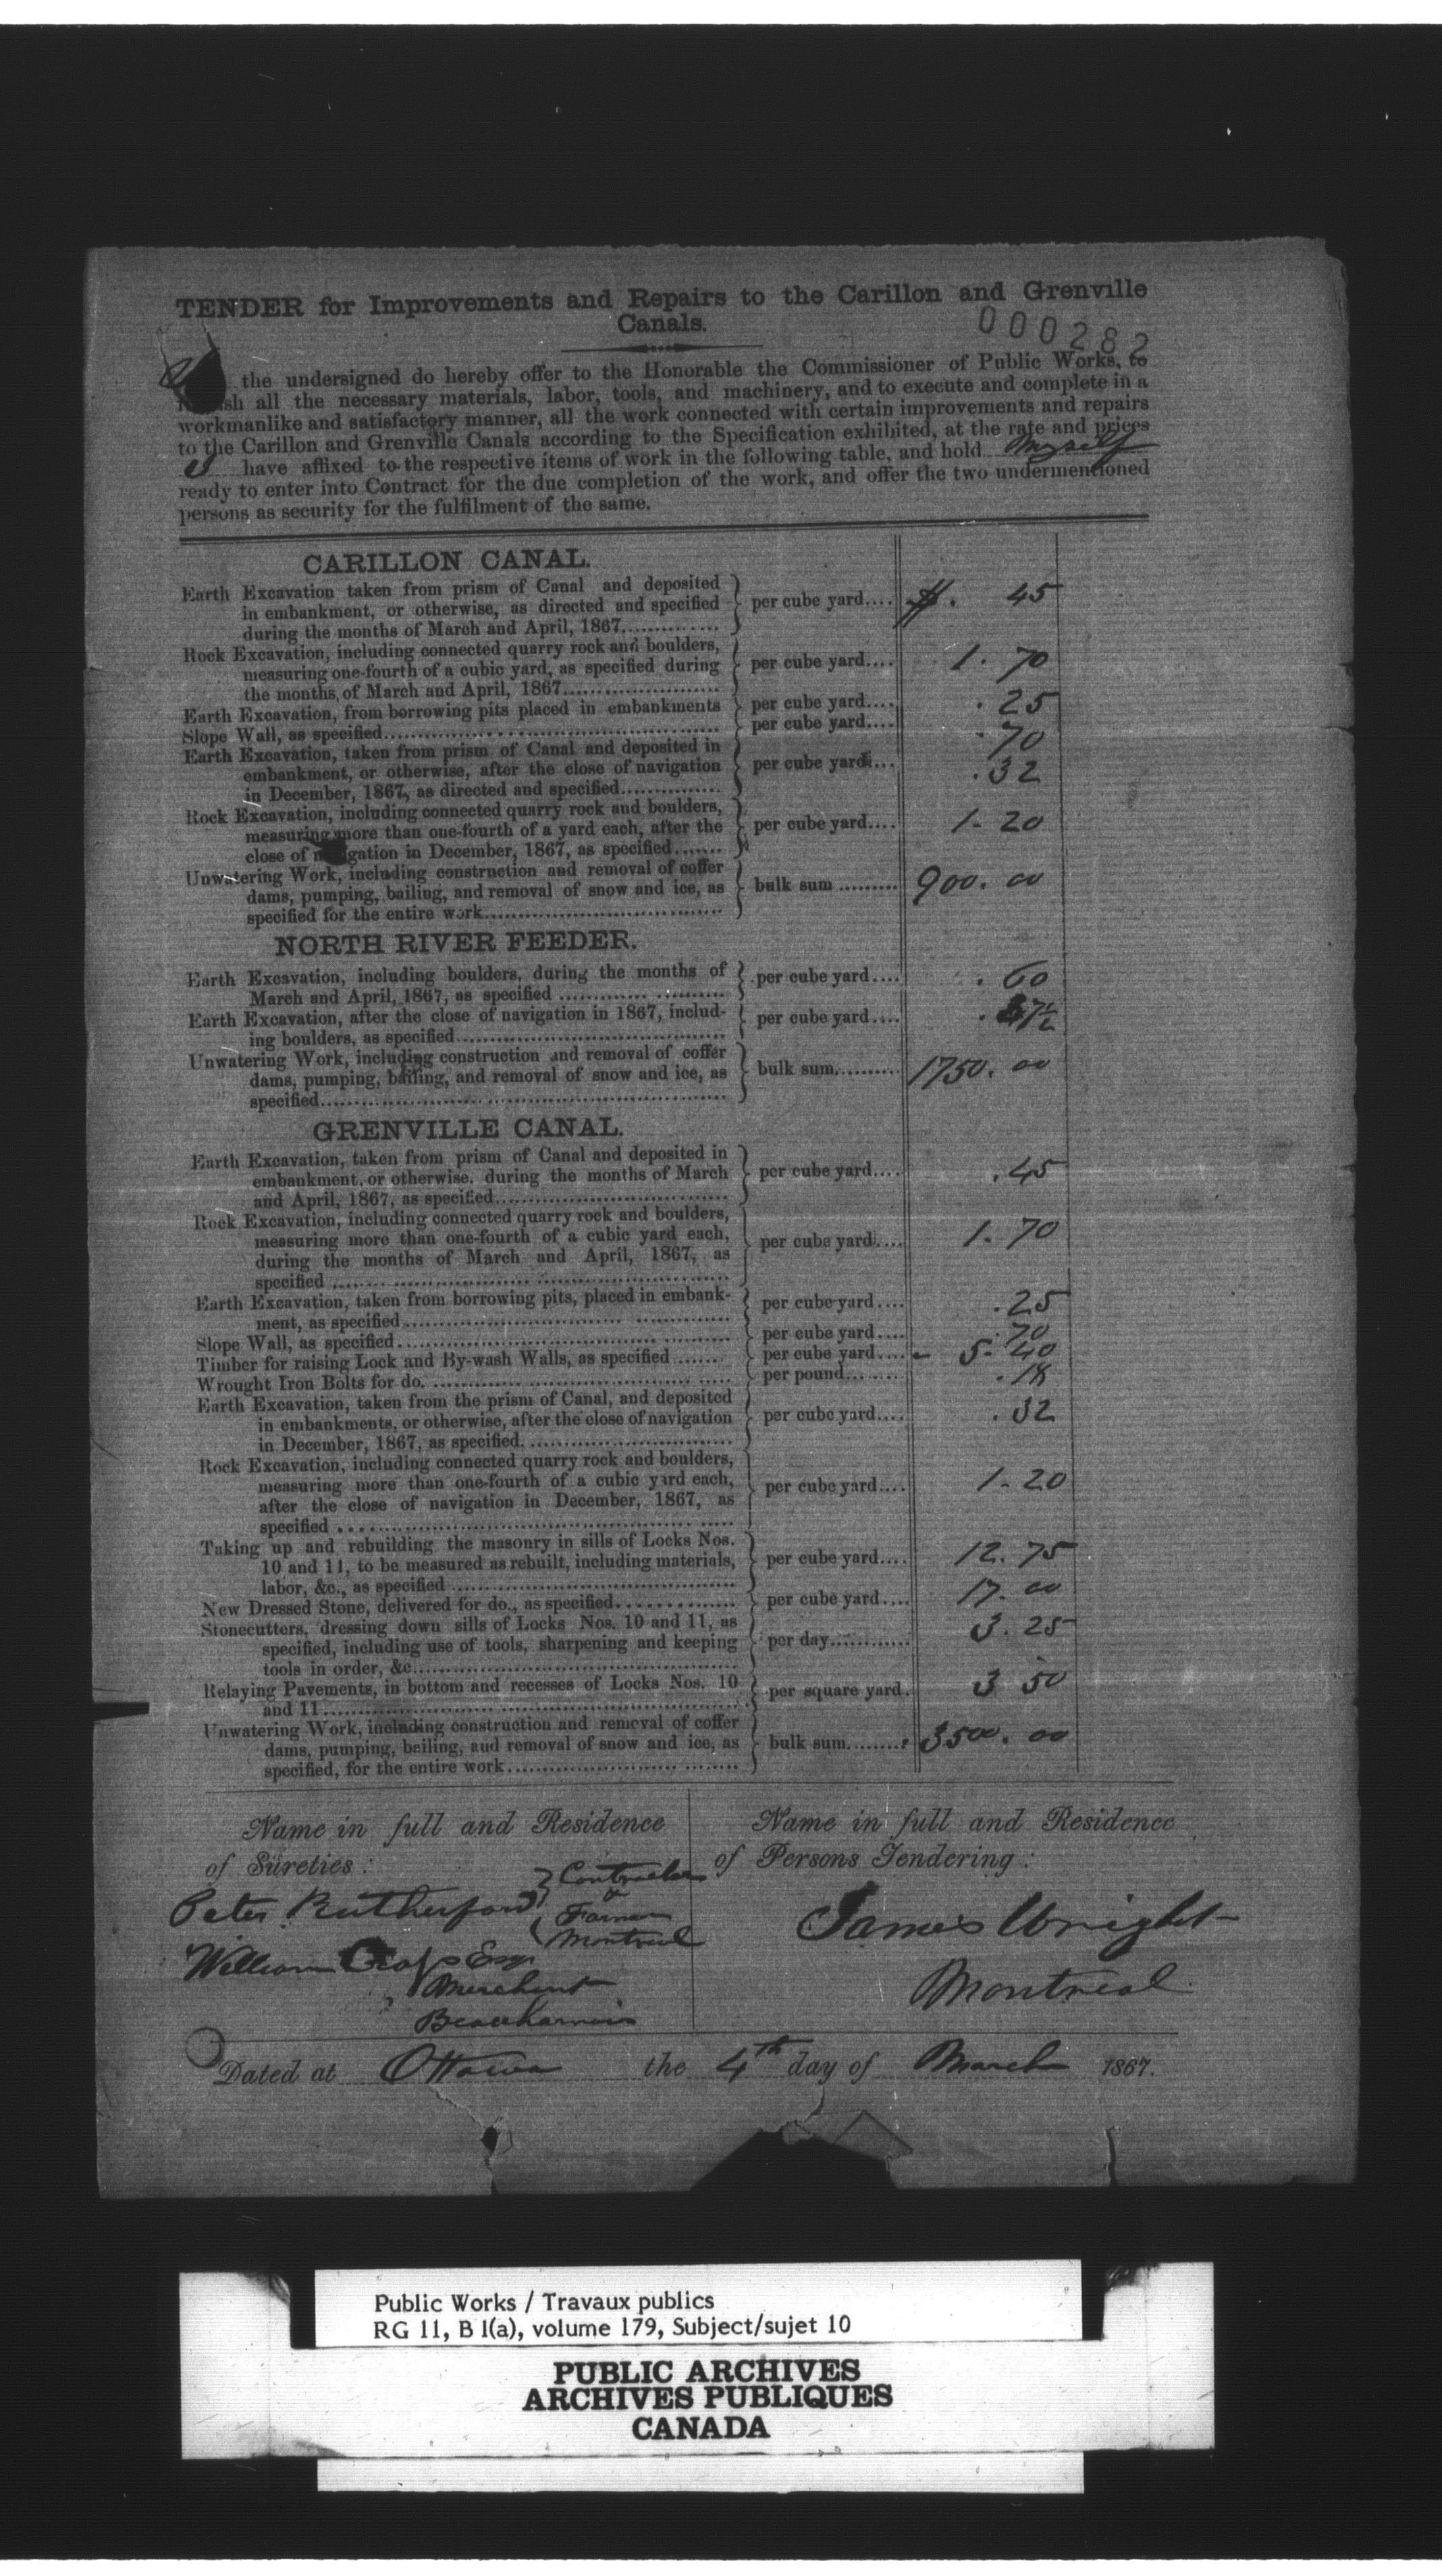 TENDER for Improvements and Repairs to the Carillon and Grenville
Canals.
000282
the undersigned do hereby offer to the Honorable the Commissioner of Public Works, to
all the necessary materials, labor, tools, and machinery, and to execute and complete in a
workmanlike and satisfactory manner, all the work connected with certain improvements and repairs
to the Carillon and Grenville Canals according to the Specification exhibited, at the rate and prices
I have affixed to the respective items of work in the following table, and hold myself
ready to enter into Contract for the due completion of the work, and offer the two undermentioned
persons as security for the fulfilment of the same.
CARILLON CANAL.
Earth Excavation taken from prism of Canal and deposited
in embankment, or otherwise, as directed and specified per cube yard.... $. 45
during the months of March and April, 1867
Rock Excavation, including connected quarry rock and boulders,
measuring one-fourth of a cubic yard, as specified during per cube yard.... 1. 70
the months of March and April, 1867
Earth Excavation, from borrowing pits placed in embankments per cube yard.... . 25
Slope Wall, as specified per cube yard.... . 70
Earth Excavation, taken from prism of Canal and deposited in
embankment, or otherwise, after the close of navigation per cube yard.... . 32
in December, 1867, as directed and specified
Rock Excavation, including connected quarry rock and boulders,
measuring more than one-fourth of a yard each, after the per cube yard.... 1- 20
close of navigation in December, 1867, as specified
Unwatering Work, including construction and removal of coffer
dams, pumping, bailing, and removal of snow and ice, as bulk sum 900. 00
specified for the entire work
NORTH RIVER FEEDER.
Earth Excavation, including boulders, during the months of per cube yard.... . 60
March and April, 1867, as specified
Earth Excavation, after the close of navigation in 1867, includ- per cube yard....
ing boulders, as specified
Unwatering Work, including construction and removal of coffer
dams, pumping, bailing, and removal of snow and ice, as bulk sum 1750. 00
specified
GRENVILLE CANAL.
Earth Excavation, taken from prism of Canal and deposited in
embankment, or otherwise, during the months of March per cube yard.... . 45
and April, 1867, as specified
Rock Excavation, including connected quarry rock and boulders,
measuring more than one-fourth of a cubic yard each, per cube yard.... 1- 70
during the months of March and April, 1867, as
specified
Earth Excavation, taken from borrowing pits, placed in embank- per cube yard.... . 25
ment, as specified
Slope Wall, as specified per cube yard.... . 70
Timber for raising Lock and By-wash Walls, as specified per cube yard.... 5- 40
Wrought Iron Bolts for do. per pound . 18
Earth Excavation, taken from the prism of Canal, and deposited
in embankments, or otherwise, after the close of navigation per cube yard.... . 32
in December, 1867, as specified.
Rock Excavation, including connected quarry rock and boulders,
measuring more than one-fourth of a cubic yard each, per cube yard.... 1- 20
after the close of navigation in December, 1867, as
specified
Taking up and rebuilding the masonry in sills of Locks Nos.
10 and 11, to be measured as rebuilt, including materials, per cube yard.... 12. 75
labor, &c., as specified
New Dressed Stone, delivered for do., as specified per cube yard.... 17. 00
Stonecutters, dressing down sills of Locks Nos. 10 and 11, as
specified, including use of tools, sharpening and keeping per day 3. 25
tools in order, &c
Relaying Pavements, in bottom and recesses of Locks Nos. 10 per square yard. 3 50
and 11
Unwatering Work, including construction and removal of coffer
dams, pumping, bailing, aud removal of snow and ice, as bulk sum 3500. 00
specified, for the entire work
Name in full and Residence
of Sureties:
Peter Rutherford Contractor
& Farmer
Montreal
William Esqr
Merchant
Beauharnois
Name in full and Residence
of Persons Tendering:
James Wright
Montreal
Dated at Ottawa the 4th day of March 1867.
Public Works / Travaux publics
RG 11, B 1(a), volume 179, Subject/sujet 10
PUBLIC ARCHIVES
ARCHIVES PUBLIQUES
CANADA